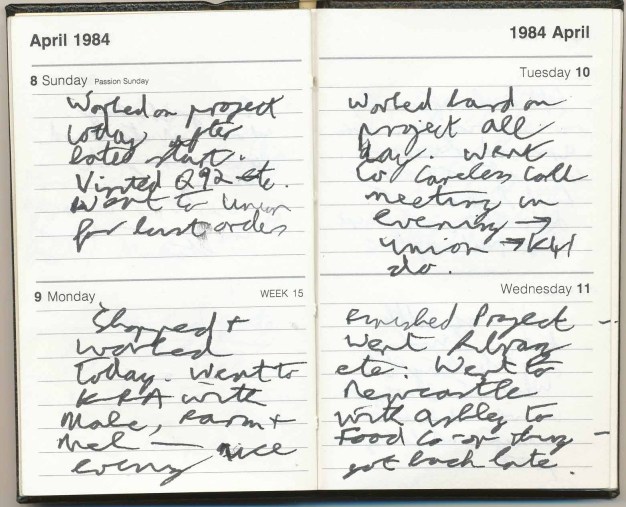 April 1984
8 Sunday Passion Sunday
Worked on project
today after
late start.
Visited Q92 etc.
Went to Union
for last orders
9 Monday WEEK 15
Shopped +
worked
today. Went to
KRA with
Male, +
Mel — nice
evening
1984 April
Tuesday 10
Worked hard on
project all
day. Went
to Careless Talk
meeting in
evening →
union →
do.
Wednesday 11
Finished Project –
went Library
etc. Went to
Newcastle
with Ashley to
Food Co-op thing –
got back late.